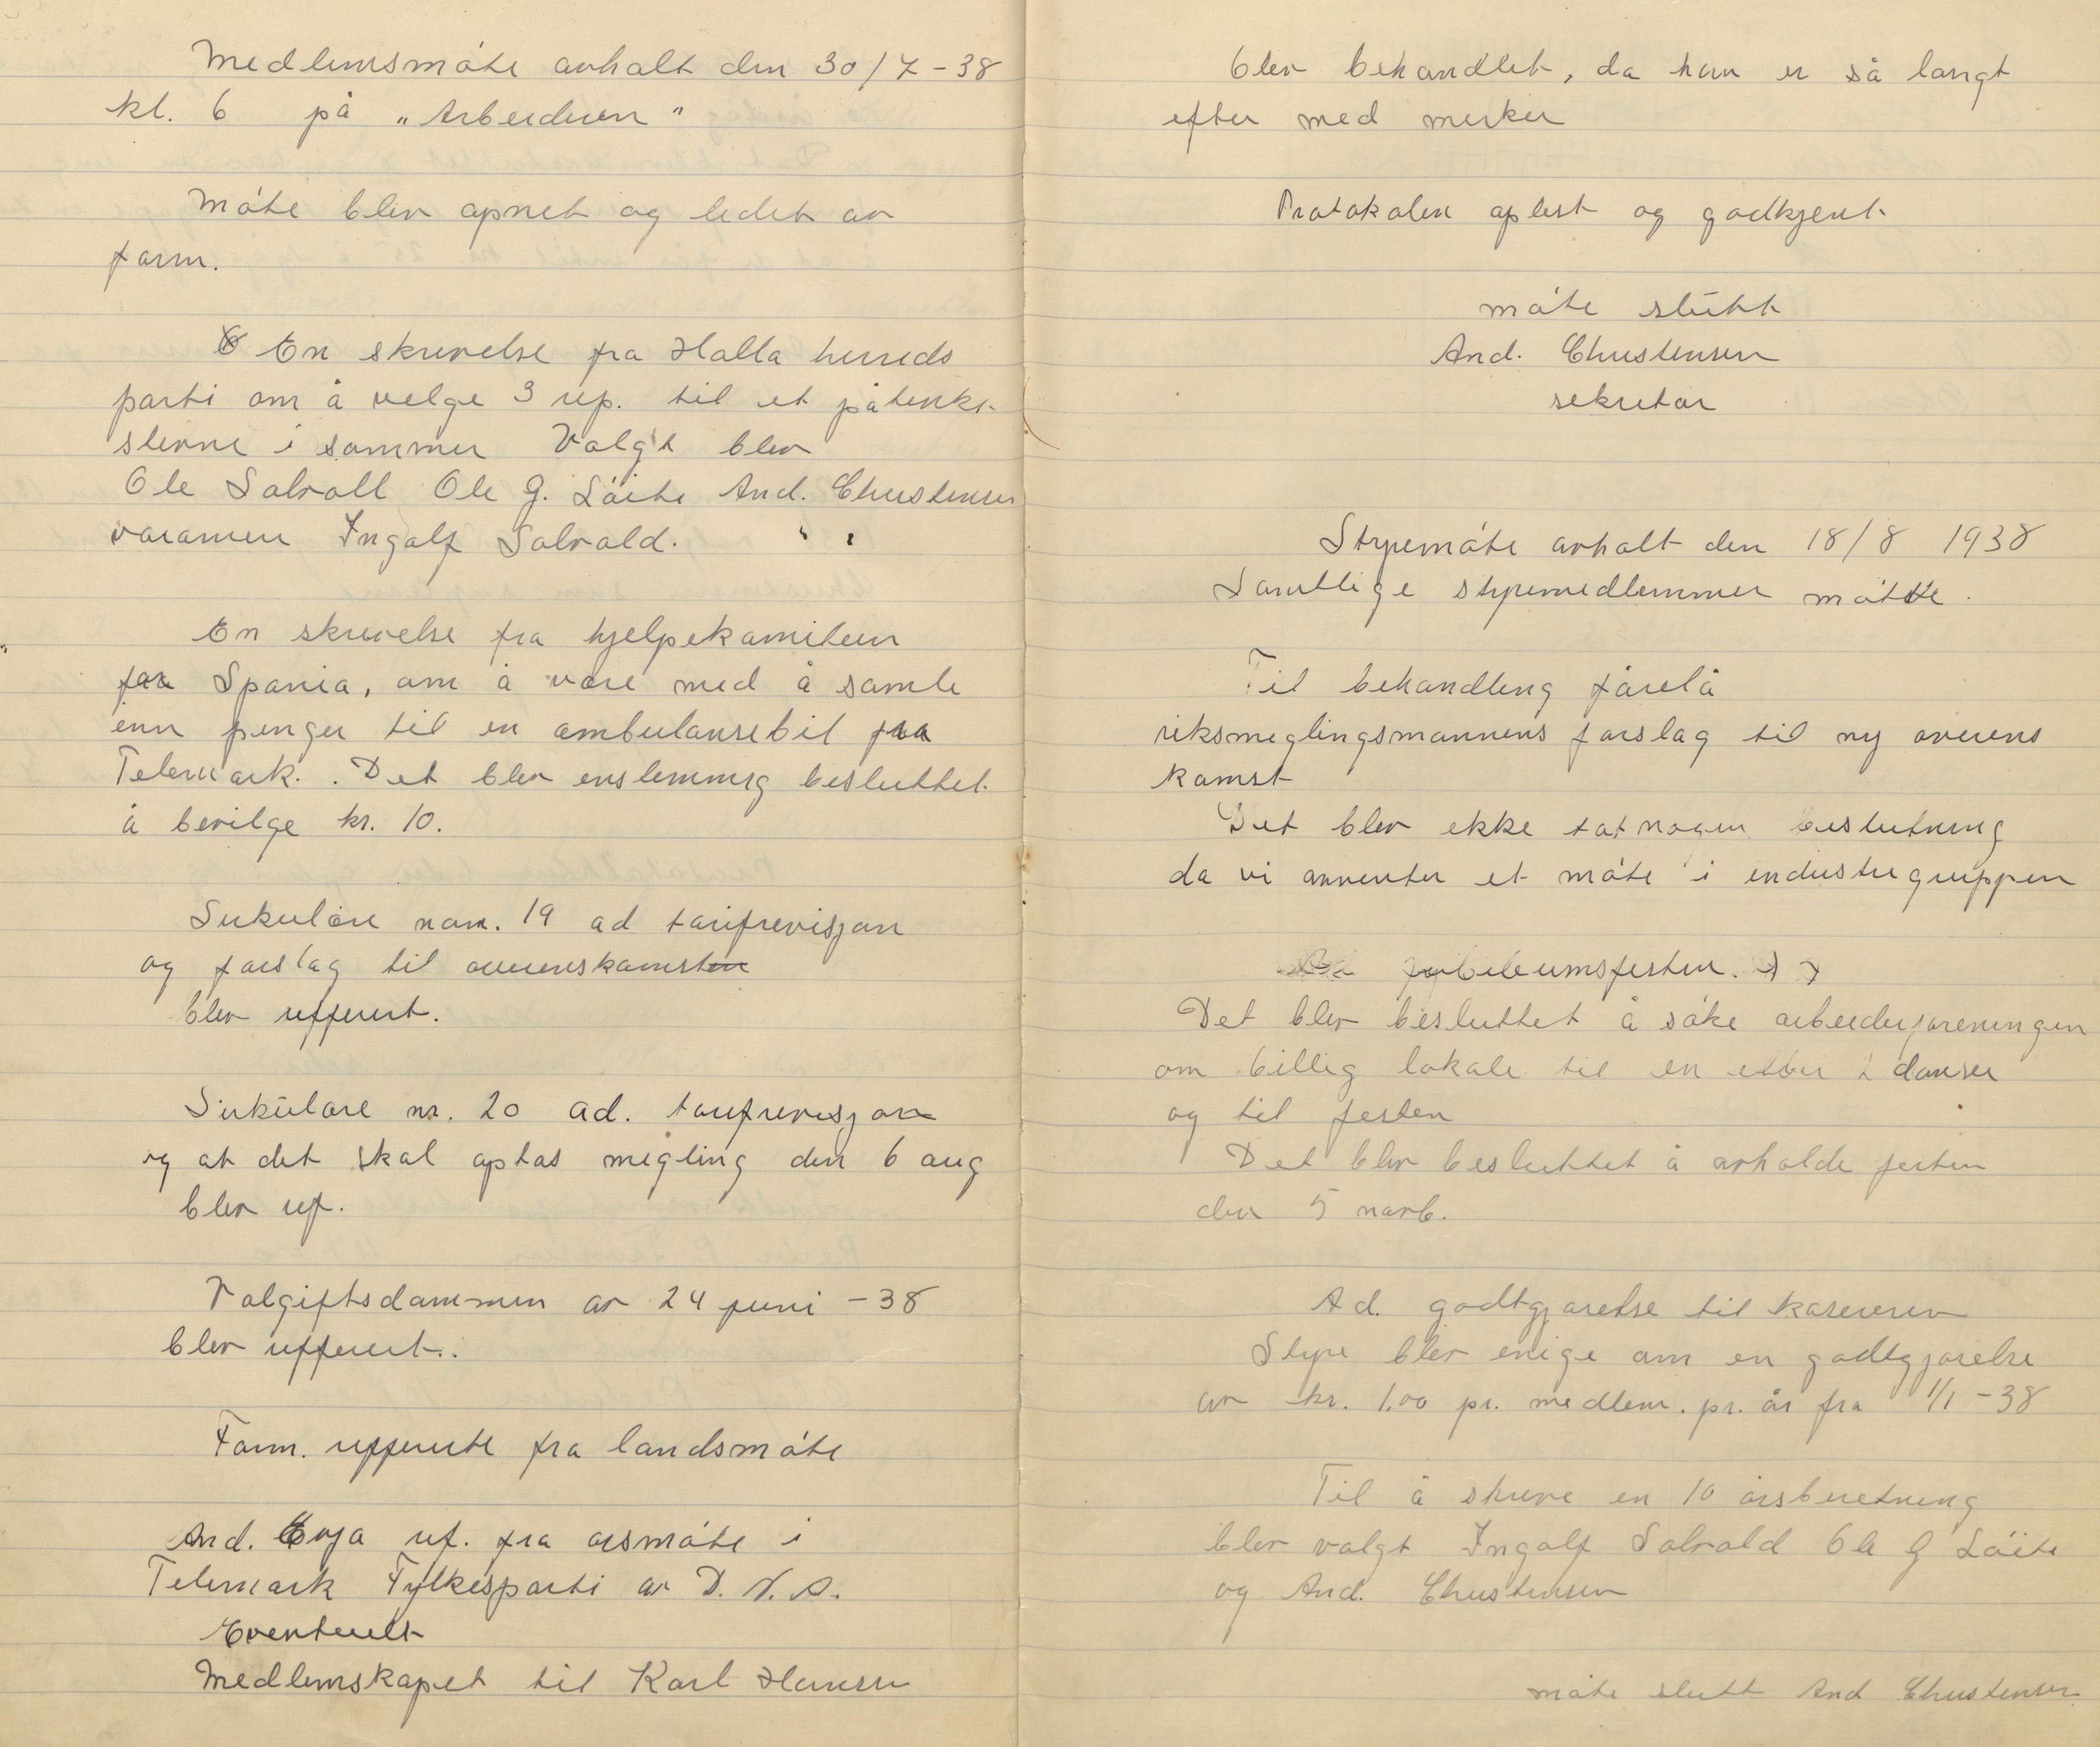 Medlemsmøte avholt den 30/7-38
kl. 6 på „Arbeideren"
Møte blev åpnet og ledet av
form.
En skrivelse fra Holla herreds
parti om å velge 3 rep. til et påtenkt
stevne i sommer Valgt blev
Ole Solvoll Ole G. Løite And. Christensen
varamen Ingolf Solvold. " "
En skrivelse fra hjelpekomiteen
for Spania, om å være med å samle
inn penger til en ambulansebil fra
Telemark. . Det blev enstemmig besluttet
å bevilge kr. 10.
Sirkulære nom. 19 ad tarifrevisjon
og forslag til overenskomsten
blev refferert.
Sirkulære nr. 20 ad. tarifrevisjon
og at det skal optas megling den 6 aug
blev ref.
Volgiftsdommen av 24 juni -38
blev refferert..
Form. refferete fra landsmøte
And. Evja ref. fra årsmøte i
Telemark Fylkesparti av D. N. A.
Eventuelt
Medlemskapet til Karl Hansen
blev behandlet, da han er så langt
efter med merker
Protokolen oplest og godkjent.
møte slutt
And. Christensen
sekretær
Styremøte avholt den 18/8 1938
Samtlige styremedlemmer møtte.
Til behandling forelå
riksmeglingsmannens forslag til ny overens
komst
Det blev ikke tat nogen beslutning
da vi avventer et møte i industrigruppen
jubileumsfesten.
Det blev besluttet å søke arbeiderforeningen
om billig lokale til en eller 2 danser
og til festen
Det blev besluttet å avholde festen
den 5 novb.
Ad. godtgjørelse til kasereren
Styre blev enige om en godtgjørelse
av kr. 1.00 pr. medlem. pr. år fra 1/1 -38
Til å skrive en 10 årsberetning
blev valgt Ingolf Solvold Ole G Løite
og And. Christensen
møte slutt And Christensen